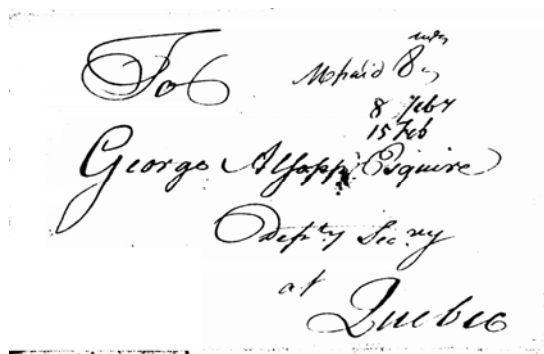 To
8 Feby
15 Feb
George Allsopp Esquire
Depty Secry
at
Quebec